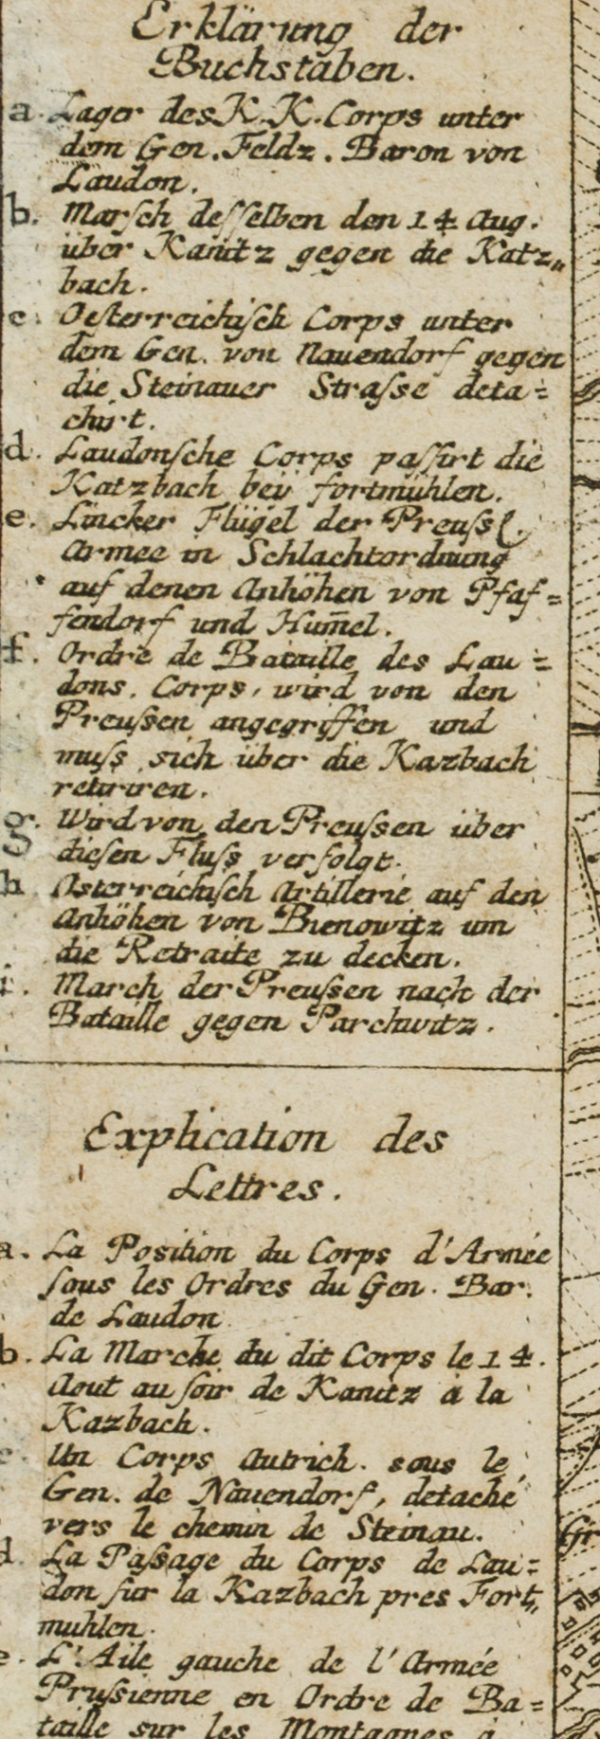 Erklärung der
Buchstaben.
a. Lager des K. K. Corps unter
dem Gen. Feldz. Baron von
Laudon.
b. Marſch deſſelben den 14 Aug.
über Kanitz gegen die Katz„
bach.
c. Oeſterreichiſch Corps unter
dem Gen. von Nauendorf gegen
die Steinauer Straſse deta=
chirt.
d. Laudonſche Corps paſſirt die
Katzbach bey fortmühlen.
e. Lincker Flügel der Preuſsſ.
Armee in Schlachtordnung
auf denen Anhöhen von Pfaf=
fendorf und Hum̄el.
f. Ordre de Bataille des Lau=
dons. Corps, wird von den
Preuſsen angegriffen und
muſs sich über die Kazbach
retiriren.
g. Wird von den Preuſsen über
dieſen Fluſs verfolgt.
h Osterreichiſch Artillerie auf den
Anhöhen von Bienowitz um
die Retraite zu decken.
i. March der Preuſsen nach der
Bataille gegen Parchwitz.
Explication des
Lettres.
a. La Position du Corps d'Armée
ſous les Ordres du Gen. Bar.
de Laudon
b. La Marche du dit Corps le 14.
Aout au ſoir de Kanitz a la
Kazbach.
c. Un Corps Autrich. sous le
Gen. de Nauendorf, detaché
vers le chemin de Steinau.
d. La Paſsage du Corps de Lau=
don ſur la Kazbach pres Fort„
muhlen.
e. L'Aile gauche de l'Armée
Pruſsienne en Ordre de Ba=
taille sur les Montagnes à
Gr